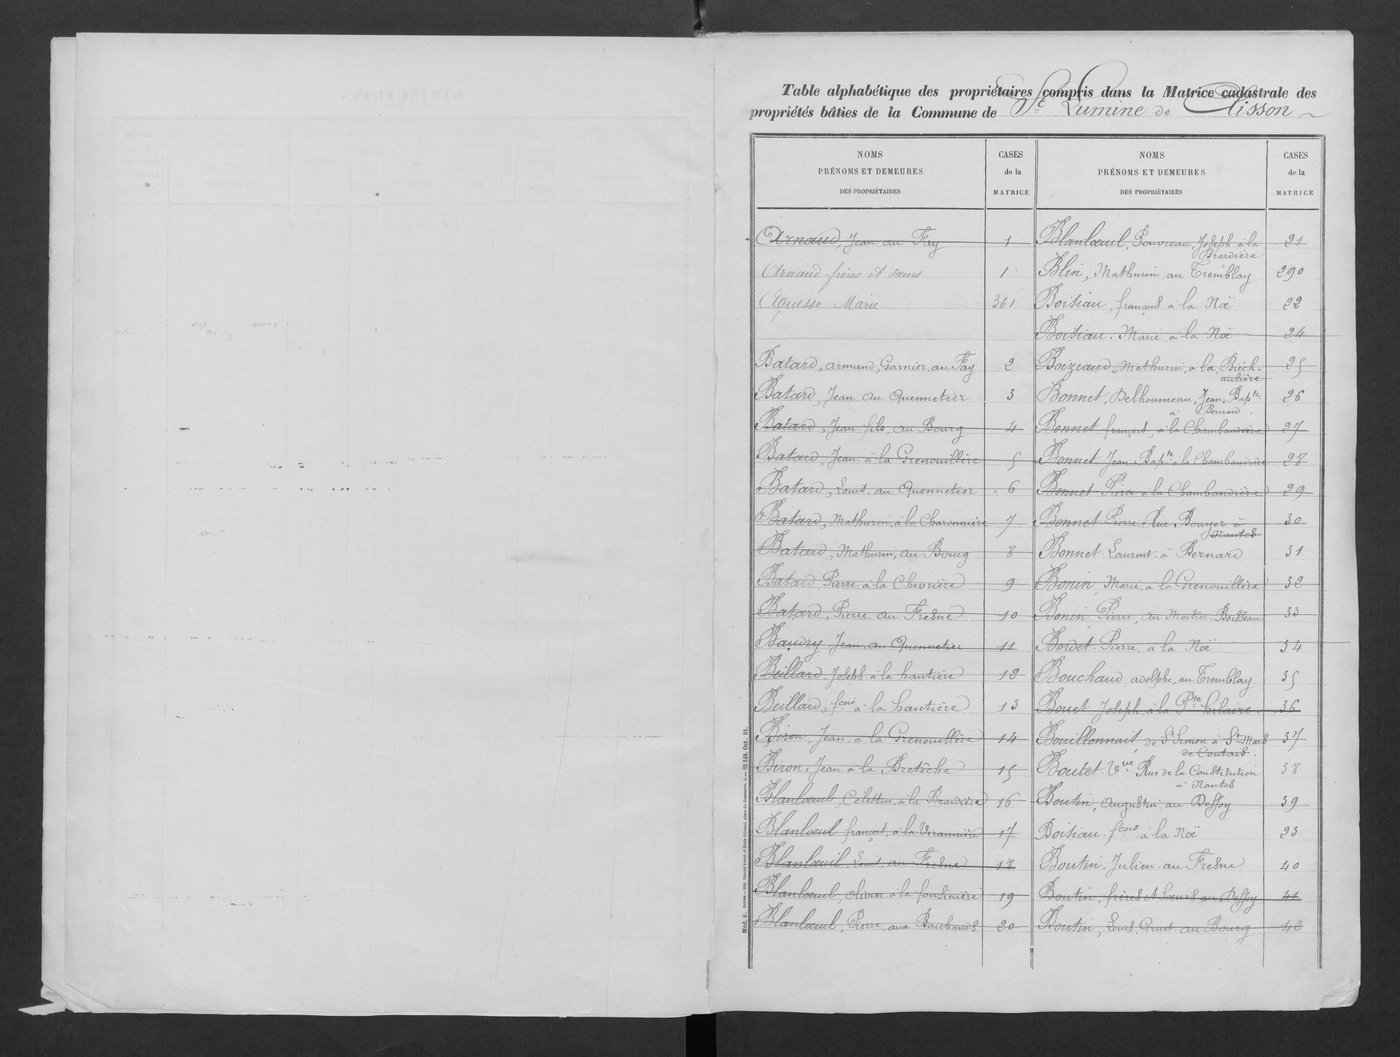 Table alphabétique des propriétaires compris dans la Matrice cadastrale des
propriétés bâties de la Commune de St Lumine de Clisson
NOMS
PRÉNOMS ET DEMEURES
DES PROPRIÉTAIRES
CASES
de la
MATRICE
Arnaud, Jean au Fay 1
Arnaud frères et sœurs 1
Aguesse Marie 361
Batard, armand, Garnier, au Fay 2
Batard, Jean au Quennetier 3
Batard, Jean fils, au Bourg 4
Batard, Jean à la Grenouillère 5
Batard, Louis au Quennetier 6
Batard, Mathurin, à la Charonnière 7
Batard, Mathurin, au Bourg 8
Batard Pierre à la Chevrière 9
Batard, Pierre au Fresne 10
Baudry Jean au Quennetier 11
Beillard, Joseph à la hautière 12
Beillard, fcois à la hautière 13
Biron Jean à la Grenouillère 14
Biron, Jean à la Bretèche 15
Blanlœuil, Célestin, à la Brardière 16
Blanlœuil françois, à la 17
Blanlœuil Louis au Fresne 18
Blanlœuil, olivier à la 19
Blanlœuil, Pierre, aux Bouchauds 20
NOMS
PRÉNOMS ET DEMEURES
DES PROPRIÉTAIRES
CASES
de la
MATRICE
Blanlœuil, Pouvreau, Joseph à la 21
Brardière
Blin, Mathurin au Tremblay 290
Boisiau, françois à la Noë 22
Boisiau Marie à la Noë 24
Boiziaud, Mathurin, à la 25
Bonnet, Delhoumeau, Jean Bapte 26
à Bernard
Bonnet françois, à la Chambaudière 27
Bonnet Jean Bapte à la Chambaudière 28
Bonnet Pierre à la Chambaudière 29
Bonnet Pierre Rue Bouyer à 30
Nantes
Bonnet Laurent à Bernard 31
Bonin, Marie, à la Grenouillère 32
Bonin, Pierre, au Mortier Boisleau 33
Bordet Pierre à la Noë 34
Bouchaud, adolphe, au Tremblay 35
Bouet Joseph, à la Pte hilaire 36
Bouillonnais, de St Simon à St Mars 37
de Coutais
Boutet Vve Rue de la Constitution 38
à Nantes
Boutin, Augustin au Deffoy 39
Boisiau fcois à la Noë 23
Boutin, Julien au Fresne 40
Boutin, frères et sœurs au Deffoy 41
Boutin, Louis Gruet au Bourg 42